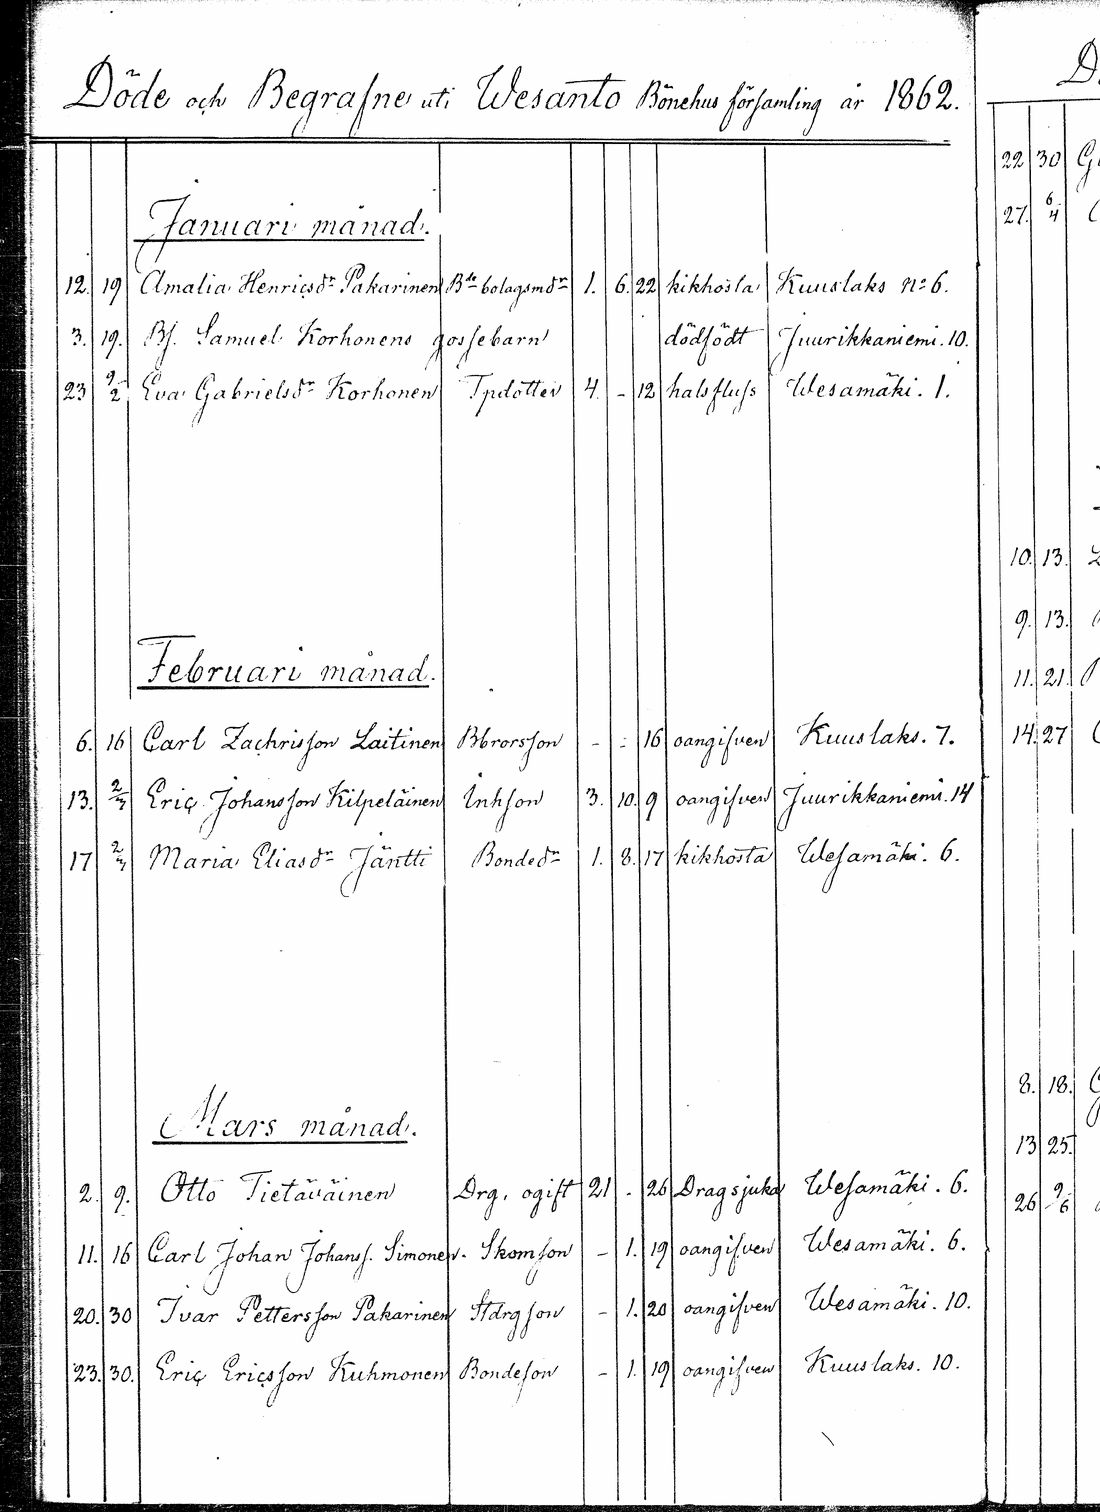 Döde och Begrafne uti Wesanto Bönehus församling år 1862.
Januari månad.
12. 19 Amalia Henricsdr Pakarinen Bde bolagsmdr 1. 6. 22 kikhosta Kuuslaks No 6.
3. 19. Bf. Samuel Korhonens gossebarn dödfödt Juurikkaniemi. 10.
23 9/2 Eva Gabrielsdr Korhonen Tpdotter 4. - 12 halsfluss Wesamäki. 1.
Februari månad.
6. 16 Carl Zachrisson Laitinen Bbrorsson - - 16 oangifven Kuuslaks. 7.
13. 2/3 Eric Johansson Kilpeläinen Inhson 3. 10. 9 oangifven Juurikkaniemi. 14
17 2/3 Maria Eliasdr Jäntti Bondedr 1. 8. 17 kikhosta Wesamäki. 6.
Mars månad.
2. 9. Otto Tietäväinen Drg. ogift 21 - 26 Dragsjuka Wesamäki. 6.
11. 16 Carl Johan Johanss. Simonen. Skomson - 1. 19 oangifven Wesamäki. 6.
20. 30 Ivar Pettersson Pakarinen Stdrgson - 1. 20 oangifven Wesamäki. 10.
23. 30. Eric Ericsson Kuhmonen Bondeson - 1. 19 oangifven Kuuslaks. 10.
22 30
27. 6/4
10. 13.
9. 13.
11. 21.
14. 27
8. 18.
13 25.
26 9/6